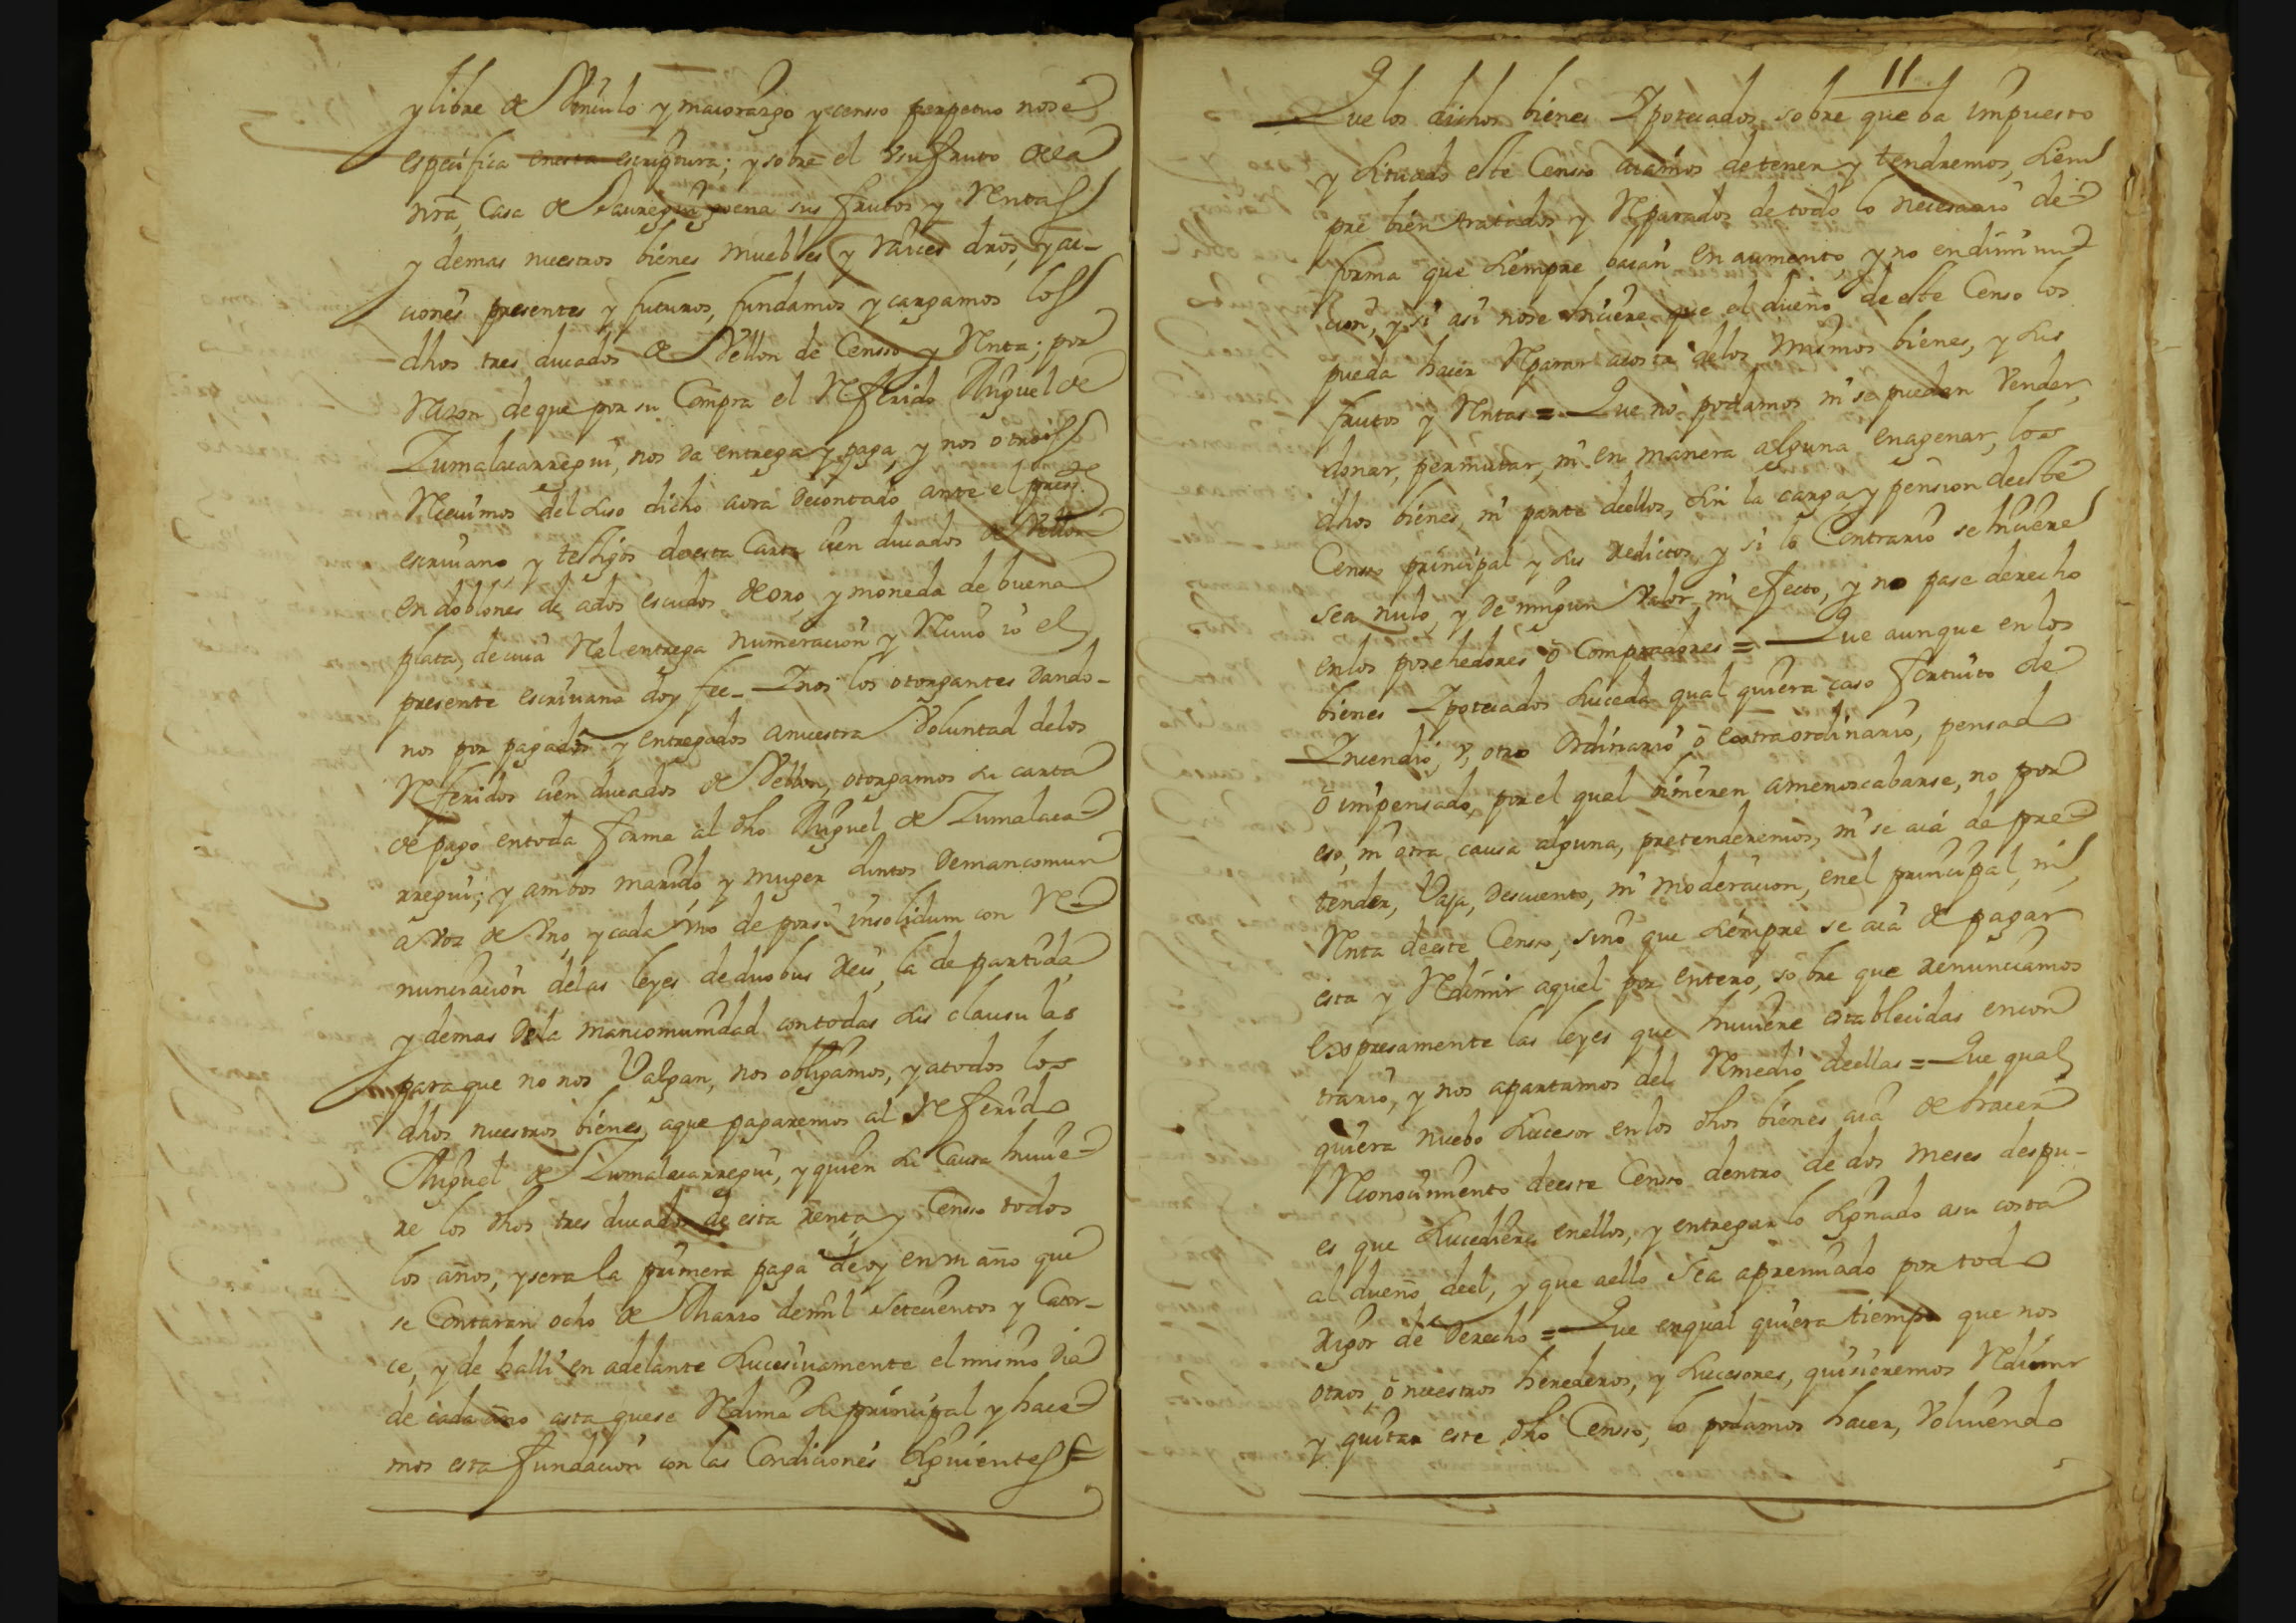 y libre de Vinculo y maiorazgo y censso perpetuo nose
espeçifica enesta escriptura; y sobre el vsufruto dela
nrã Casa de Jauregui goena sus frutos y Rentas
y demas nuestros bienes muebles y Raices drõs, y ac-
ciones presentes y futuros, fundamos y cargamos los
dhos tres ducados de Vellon de Censso y Renta; por
Razon deque por su Compra el Referido Miguel de
Zumalacarregui, nos da entrega y paga, y nos otros
Reciuimos del suso dicho aora decontado ante el preste
escriuano y testigos deesta Carta cien ducados de Vellon
en doblones de ados escudos de oro y moneda de buena
plata, de cuia Rel entrega numeracion y Reciuo io el
presente escriuano doy fee - I nos los otorgantes dando-
nos por pagados y entregados anuestra Voluntad delos
Referidos cien ducados de Vellon, otorgamos su carta
de pago entoda forma al dho Miguel de Zumalaca-
rregui; y ambos marido y muger Juntos demancomun
a voz de Vno y cada vno de porsi insolidum con Re-
nunciacion delas leyes deduobus Reis, la de partida
y demas dela mancomunidad con todas sus clausulas
paraque no nos Valgan, nos obligamos, y atodos los
dhos nuestros bienes, aque pagaremos al Referido
Miguel de Zumalacarregui, y quien su Causa huuie-
re los dhos tres ducados de esta renta y Censso todos
los años, y sera la primera paga de oy en vn año que
se Contaran ocho de Marzo demil Setecientos y Cator-
ce, y de halli en adelante sucesiuamente el mismo dia
de cada año asta quese Redima su principal y hace-
mos esta fundacion con las Condiciones siguientes =
11
Que los dichos bienes Ipotecados sobre que ba impuesto
y situado este Censso aiamos detener y tendremos, siem
pre bien tratados y Reparados de todo lo necesario de
forma que siempre baian en aumento y no endiminu
cion, y si asi nose hiciere que el dueño de este Censo los
pueda hacer Reparar acosta delos mismos bienes, y sus
frutos y Rentas = Que no podamos ni se puedan Vender,
donar, permutar, ni en manera alguna enagenar, los
dhos bienes, ni parte deellos, sin la carga y pension deeste
Censso principal y sus redictos, y si lo Contrario se hiciere
sea nulo, y de ningun Valor ni efecto, y no pase derecho
enlos posehedores ó Compradores = Que aunque en los
bienes Ipotecados suceda qual quiera caso fortuito de
Incendio, V, otro Ordinario ó Extraordinario, pensado
ó impensado, por el qual binieren amenoscabarse, no por
eso, ni otra causa alguna, pretenderemos, ni se aiá de pre
tender, Vaja, descuento, ni moderacion, enel principal, ni
Renta deeste Censo, sino que siempre se aiá de pagar
esta y Redimir aquel por entero, sobre que renunciamos
expresamente las leyes que huuiere establecidas encon
trario, y nos apartamos del Remedio deellas = Que qual
quiera nuebo sucesor en los dhos bienes aiá de hacer
Reconocimiento deeste Censso dentro de dos meses despu-
es que sucediere enellos, y entregarlo signado asu costa
al dueño deel, y que aello sea apremiado por todo
Rigor de Derecho = Que enqual quiera tiempo que nos
otros, ó nuestros herederos, y sucesores, quisieremos Redimir
y quitar este dho Censso, lo podamos hacer, Voluiendo